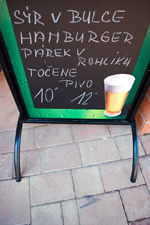 SÝR V BULCE
HAMBURGER
PÁREK V
ROHLÍKU
TOČENE
PIVO
10° 12°